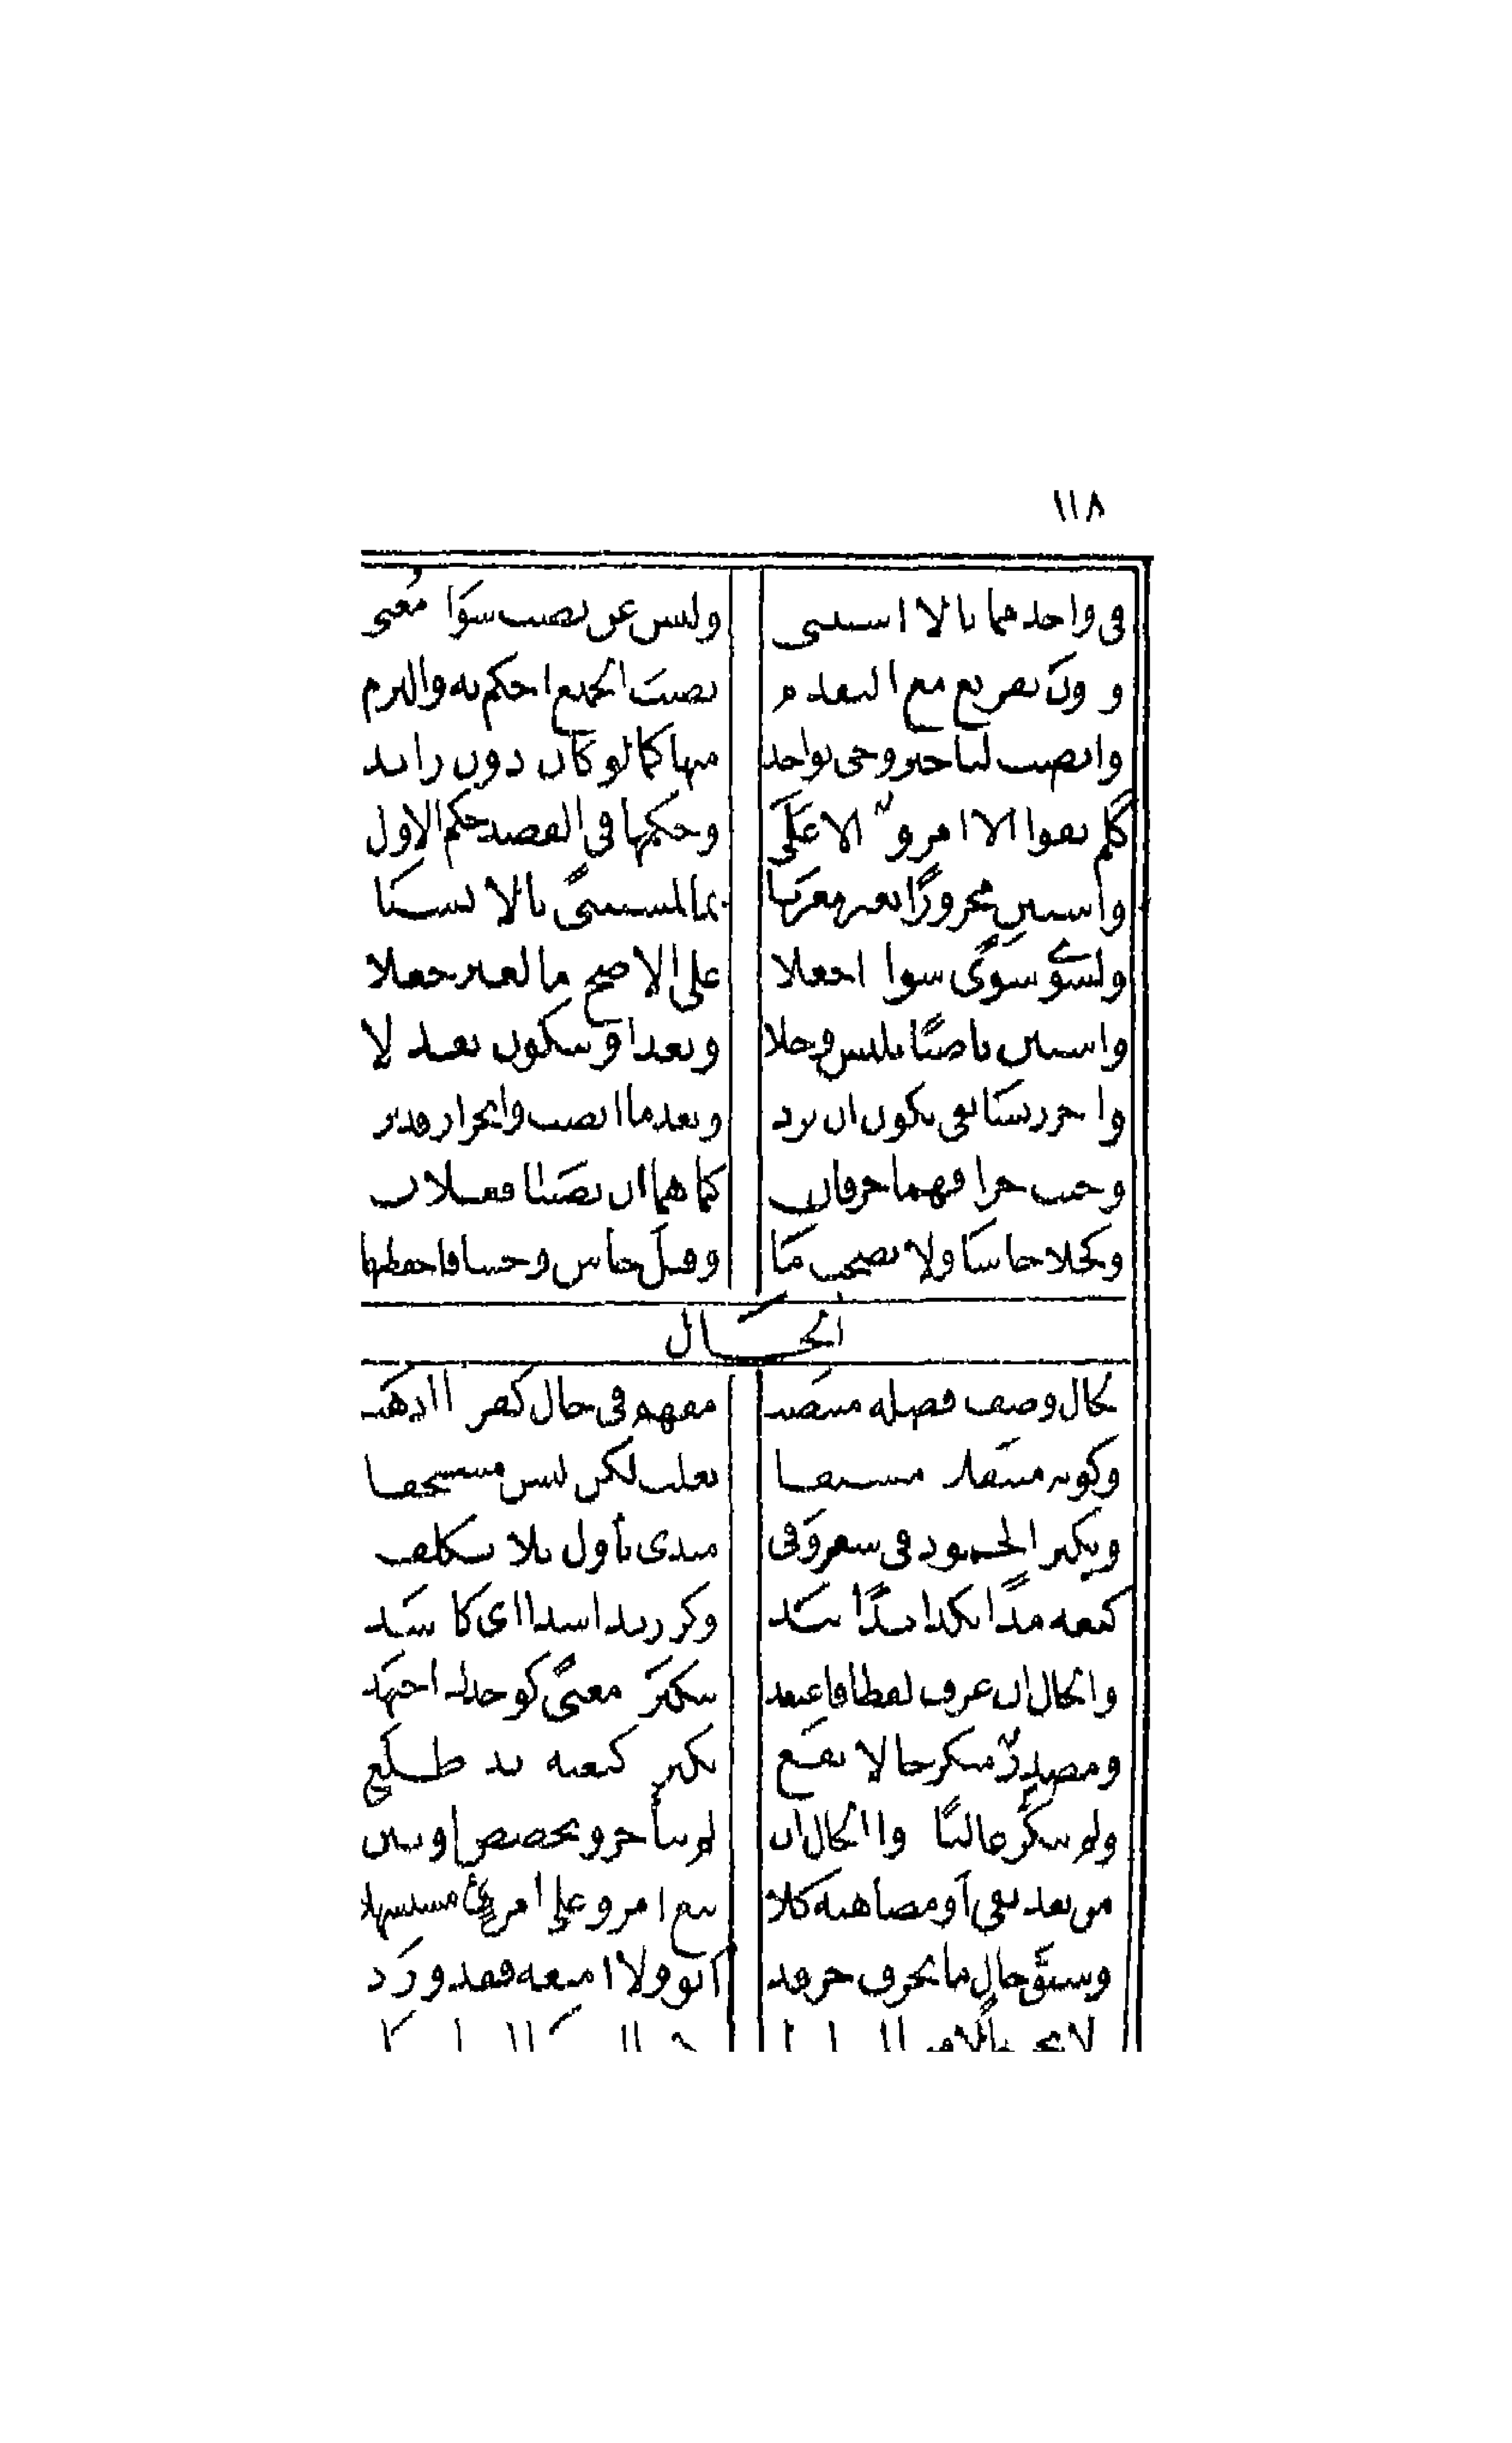 ١١٨
في واحد مما بالا استثني وليس عن نصب سوا مغني
ودون تفريغ مع التقدم نصب الجميع احكم به والتزم
وانصب لتاخير وجي بواحد منها كما لو كان دون زايد
كلم يفوا الا امرو الا علي وحكمها في القصد حكم الاول
واستثن مجرورًا بغير معربا بما لمستثنىً بالا نسبا
ولسوى سوًى سوا اجعلا على الاصح ما لغير جعلا
واستثن ناصبًا بليس وخلا وبعدا وبيكون بعد لا
واجرر بسابقي يكون ان ترد وبعد ما انصب وانجرار قد يرد
وحيث جرا فهما حرفان كما هما ان نصبا فعلان
وكخلا حاشا ولا تصحب ما وقيل حاش وحشا فاحفظهما
الحال
الحال وصف فضله منتصب مفهم في حال كفردا اذهب
وكونه منتقلا مشتقا يغلب لكن ليس مستحقا
ويكثر الجمود في سعر وفي مبدى تأول بلا تكلف
كبعه مدًا بكذا يدًا بيد وكر زيد اسدا اي كاسد
والحال ان عرف لفظا فاعتقد تنكيره معنىً كوحدك اجتهد
ومصدرٌ منكر حالا يقع بكثرة كبغتة زيد طلع
ولم ينكر غالبًا ذو الحال ان لم يتأخر او يخصص او يبن
من بعد نفي أو مضاهيه كلا يبغ امرو على امرئ مستسهلا
وسبق حال ما بحرف جر قد أبوا ولا امنعه فقد ورد